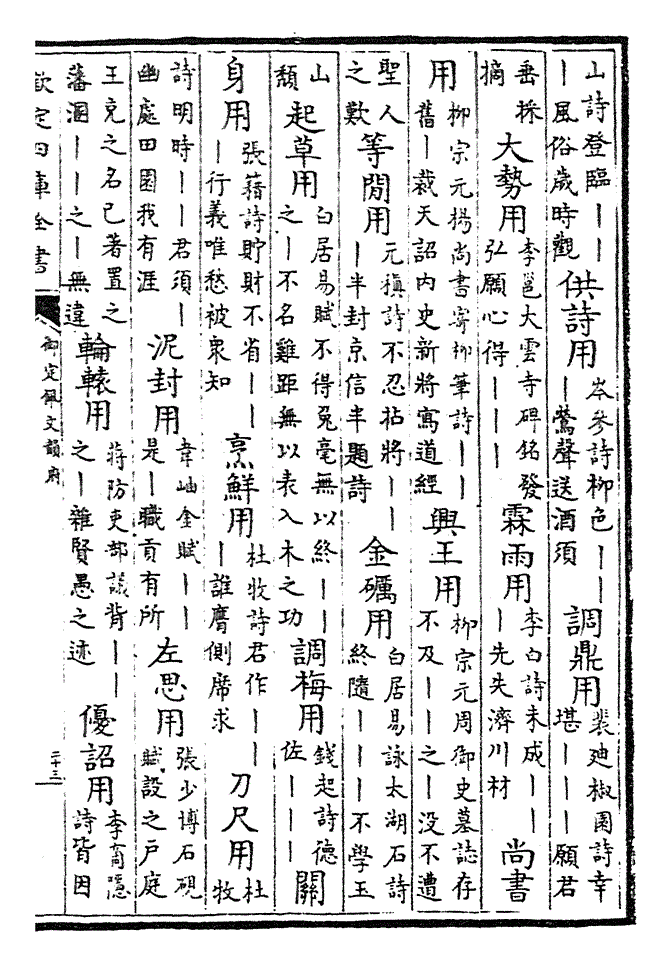 山詩登臨丨丨丨風俗歲時觀 供詩用 岑參詩柳色丨丨丨鶯聲送酒須 調鼎用 裴廸椒園詩幸堪丨丨丨願君
垂採摘 大勢用 李邕大雲寺碑銘發弘願心得丨丨丨 霖雨用 李白詩未成丨丨丨先失濟川材 尚書
用 柳宗元楊尚書寄郴筆詩丨丨舊丨裁天詔內史新將寫道經 興王用 柳宗元周御史墓誌存不及丨丨之丨沒不遭
聖人之歎 等閒用 元稹詩不忍拈將丨丨丨半封京信半題詩 金礪用 白居易詠太湖石詩終隨丨丨丨不學玉
山頽 起草用 白居易賦不得兔毫無以終丨丨之丨不名雞距無以表入木之功 調梅用 錢起詩德佐丨丨丨 關
身用 張籍詩貯財不省丨丨丨行義唯愁被衆知 烹鮮用 杜牧詩君作丨丨丨誰膺側席求 刀尺用 杜牧
詩明時丨丨君須丨幽處田園我有涯 泥封用 韋岫金賦丨丨是丨職貢有所 左思用 張少博石硯賦設之戶庭
王充之名已著置之藩溷丨丨之丨無違 輪轅用 蔣防吏部議背丨丨之丨雜賢愚之迹 優詔用 李商隱詩皆因
欽定四庫全書 御定佩文韻府 二十三